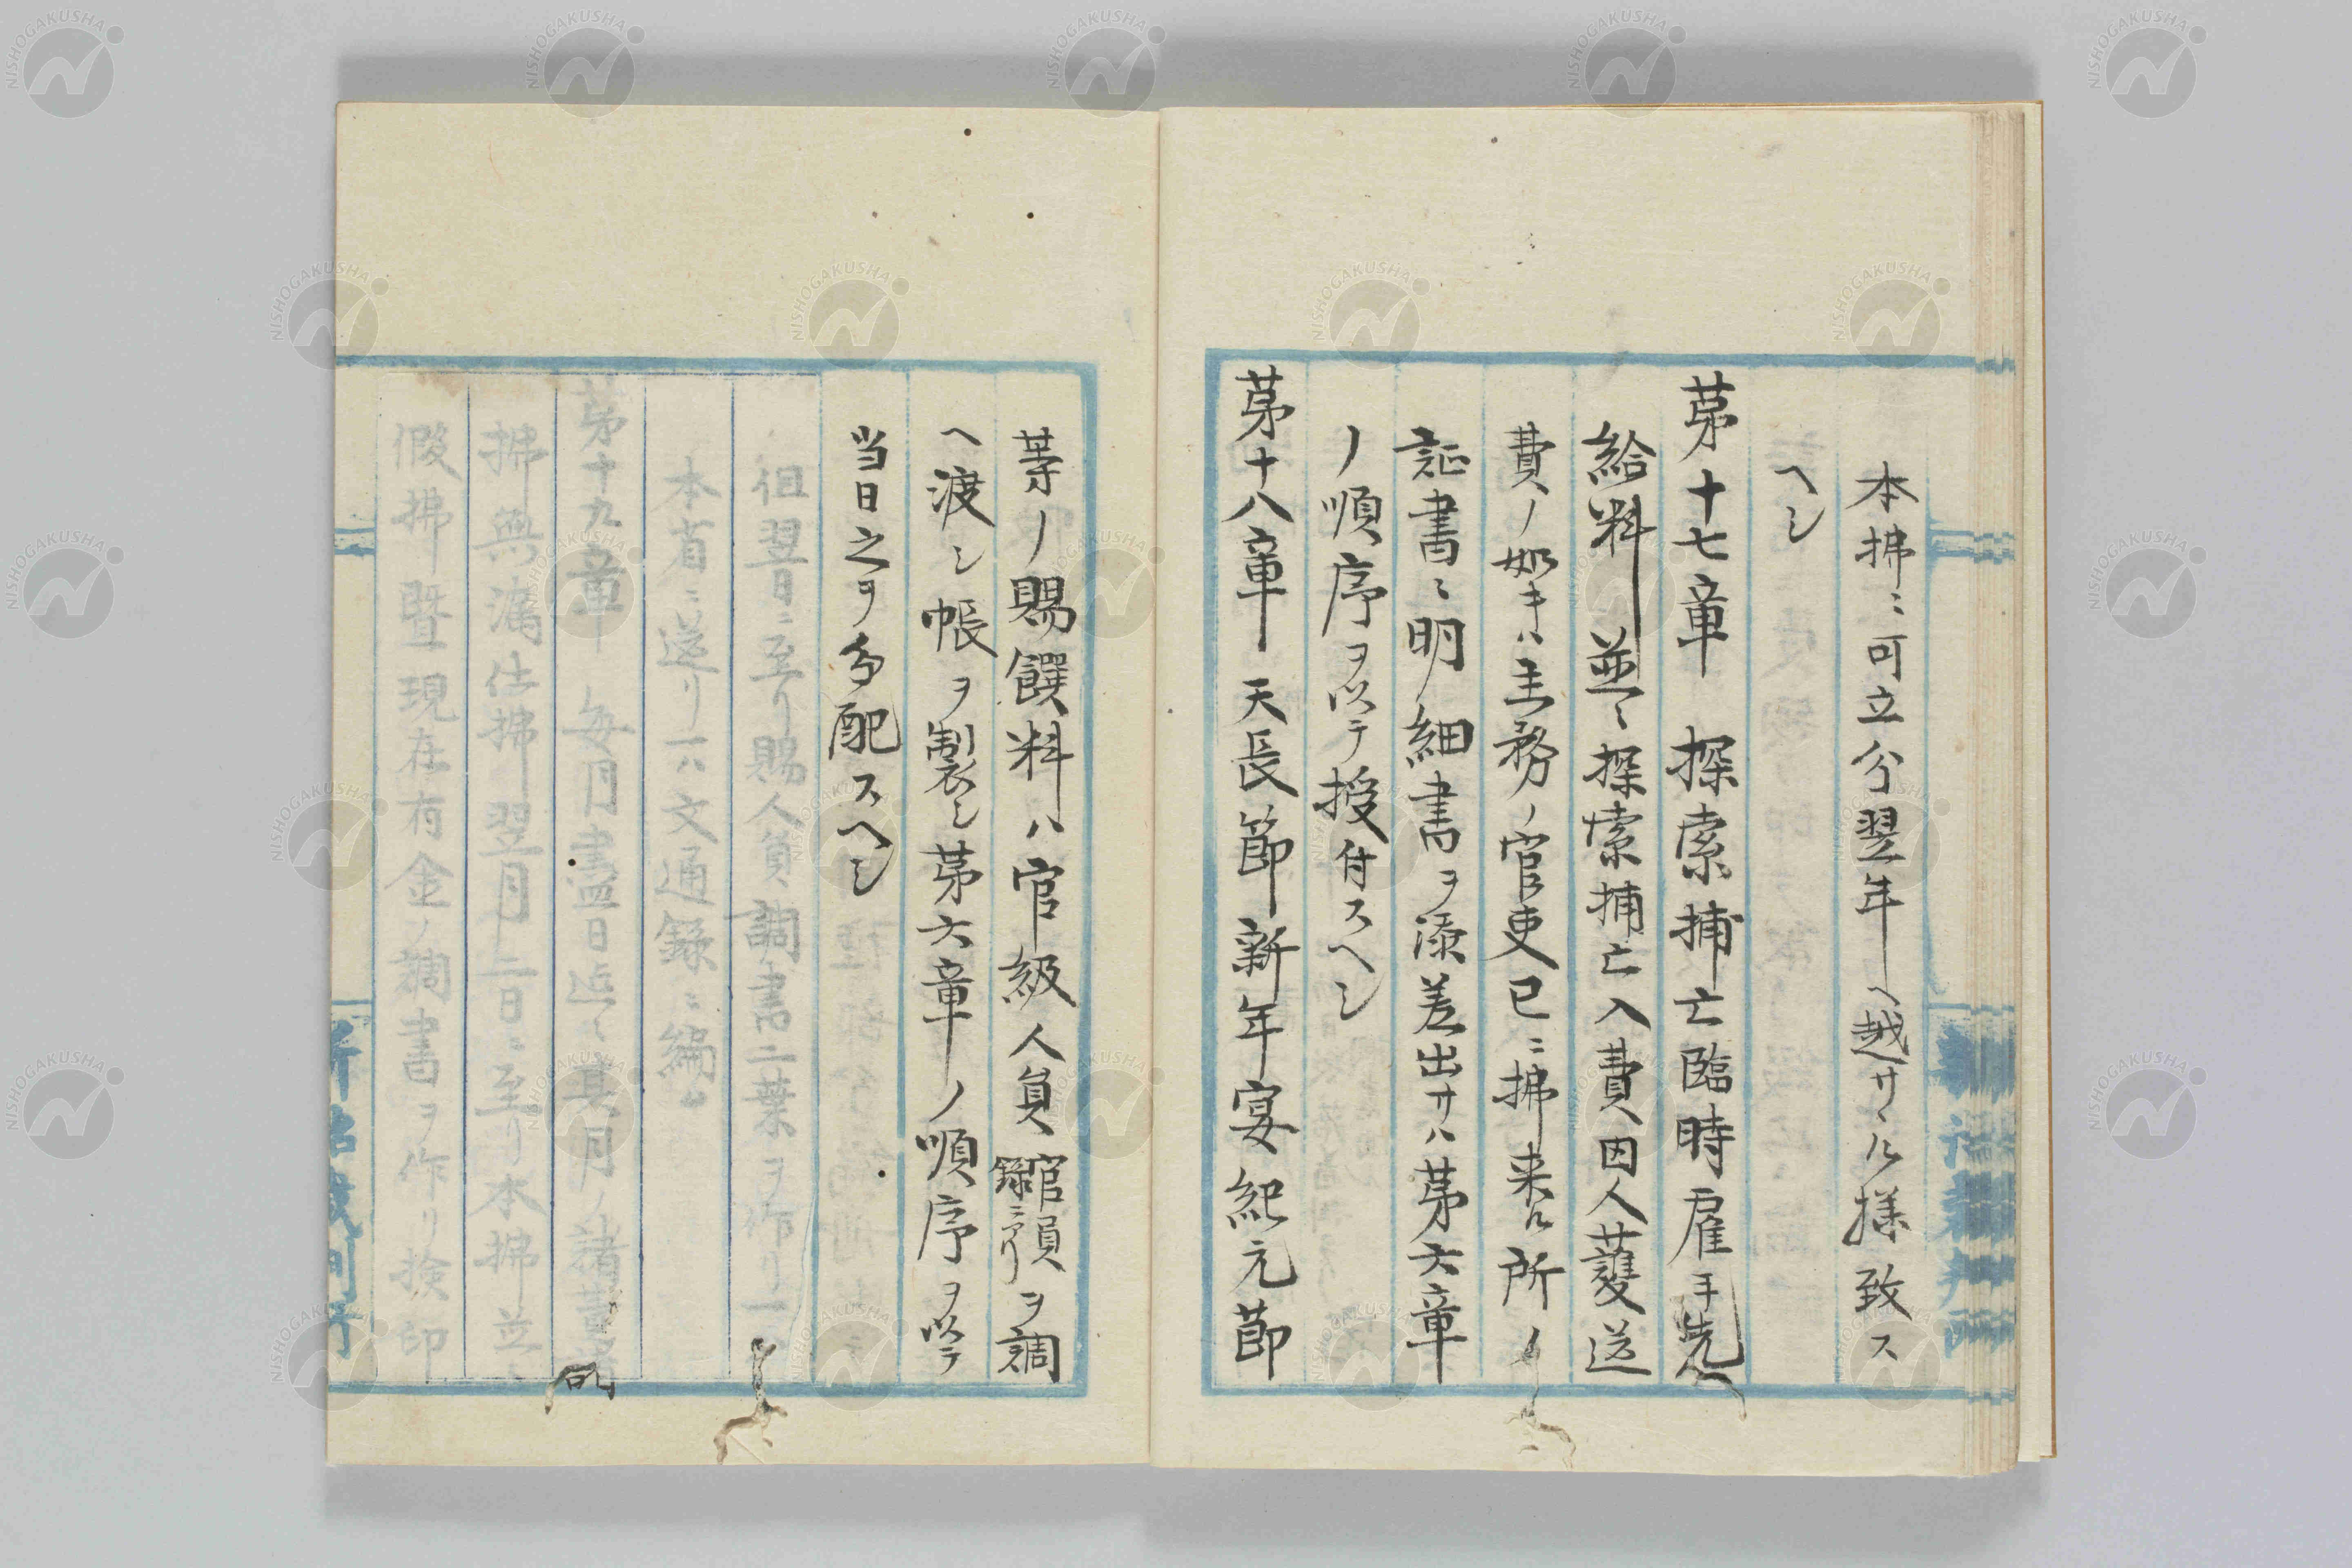 本拂ニ可立分翌年ヘ越サヽル様致ス
ヘシ
苐十七章 探索捕亡臨時雇手先
給料並ニ探索捕亡入費因人護送
費ノ如キハ主務ノ官吏已ニ拂来ル所ノ
証書ニ明細書ヲ添差出サハ苐六章
ノ順序ヲ以テ授付スヘシ
苐十八章 天長節新年宴紀元節
等ノ賜饌料ハ官級人員官員録ニアリ額ヲ調
ヘ渡シ帳ヲ製シ苐六章ノ順序ヲ以テ
当日之ヲ分配スヘシ
但翌日ニ至リ賜人員調書二葉ヲ作リ一ハ
本省ニ送リ一ハ文通録ニ編ム
苐十九章 毎月盡日迄ニ其月ノ諸費諸
拂無漏仕拂翌月二日ニ至リ本拂並ニ
假拂暨現在有金ノ調書ヲ作リ検印
NISHOGAKUSHA